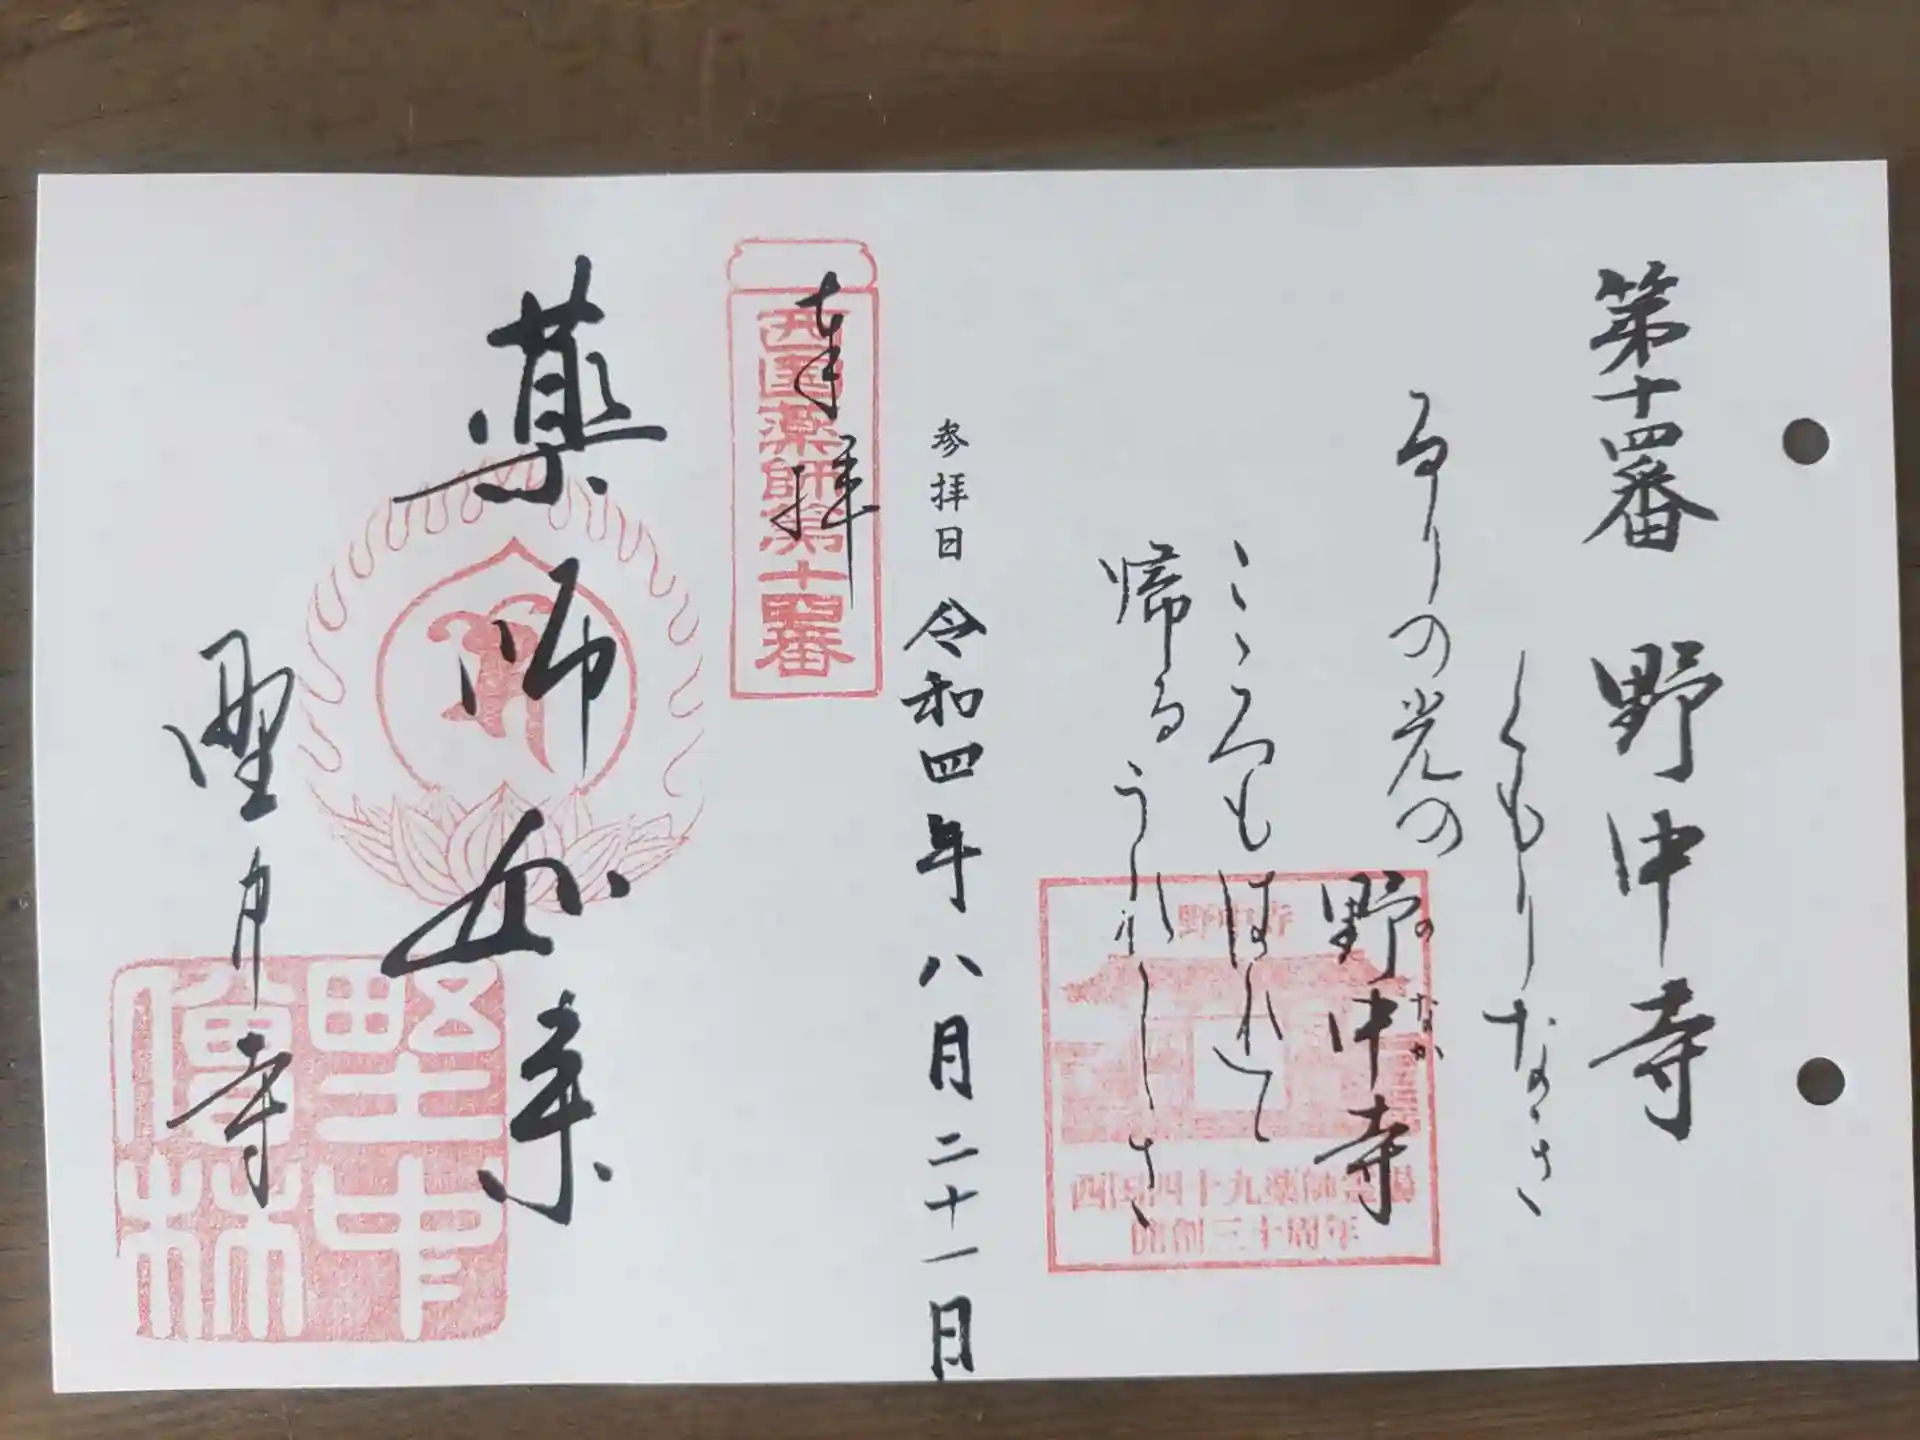 第十四番 野中寺
くもりなき
るりの光の
野中寺
のなか
こゝろもはれて
帰るうれしさ
野中寺
西国四十九薬師霊場
開創三十周年
参拝日 令和四年八月二十一日
奉拝
西国薬師第十四番
薬師如来
野中寺
野中
僧林